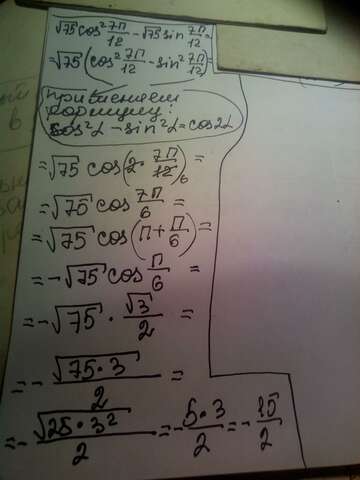 √75 cos² 7П/12 − √75 sin² 7П/12 =
= √75 (cos² 7П/12 − sin² 7П/12) =
применяем
формулу:
cos²α − sin²α = cos2α
= √75 cos(2 · 7П/12 6) =
= √75 cos 7П/6 =
= √75 cos(П + П/6) =
= −√75 cos П/6 =
= −√75 · √3/2 =
= −√75·3/2 =
= −√25·3²/2 = −5·3/2 = −15/2